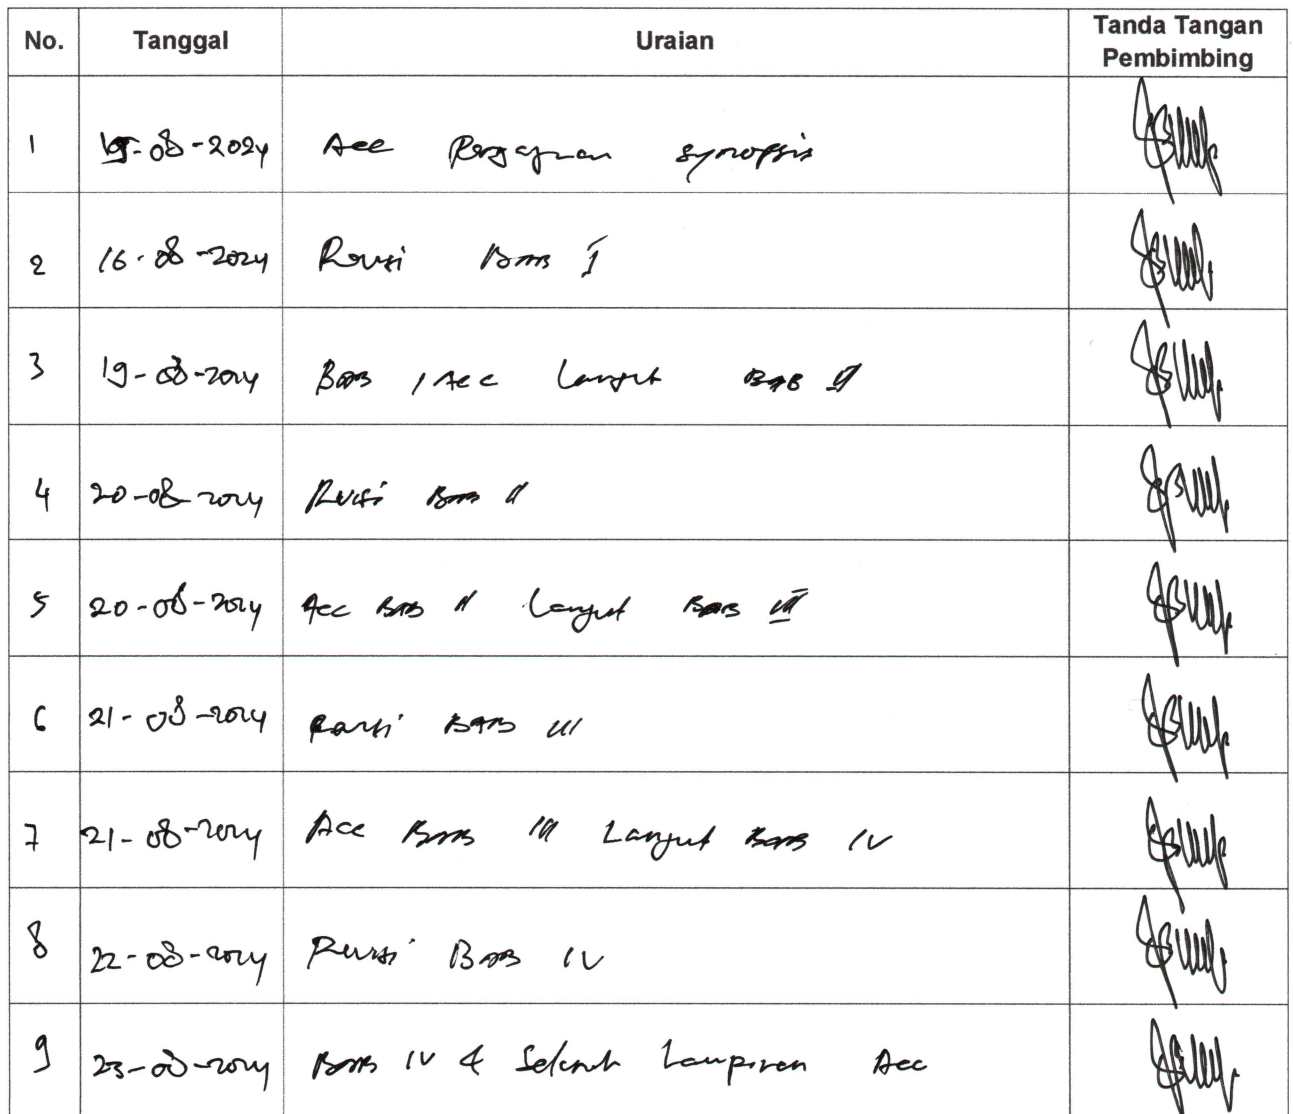 No. Tanggal Uraian Tanda Tangan Pembimbing
1 15-08-2024 Acc Pengajuan synopsis
2 16-08-2024 Revisi BAB I
3 19-08-2024 BAB I Acc Lanjut BAB II
4 20-08-2024 Revisi BAB II
5 20-08-2024 Acc BAB II Lanjut BAB III
6 21-08-2024 Revisi BAB III
7 21-08-2024 Acc BAB III Lanjut BAB IV
8 22-08-2024 Revisi BAB IV
9 23-08-2024 BAB IV & Seluruh Lampiran Acc